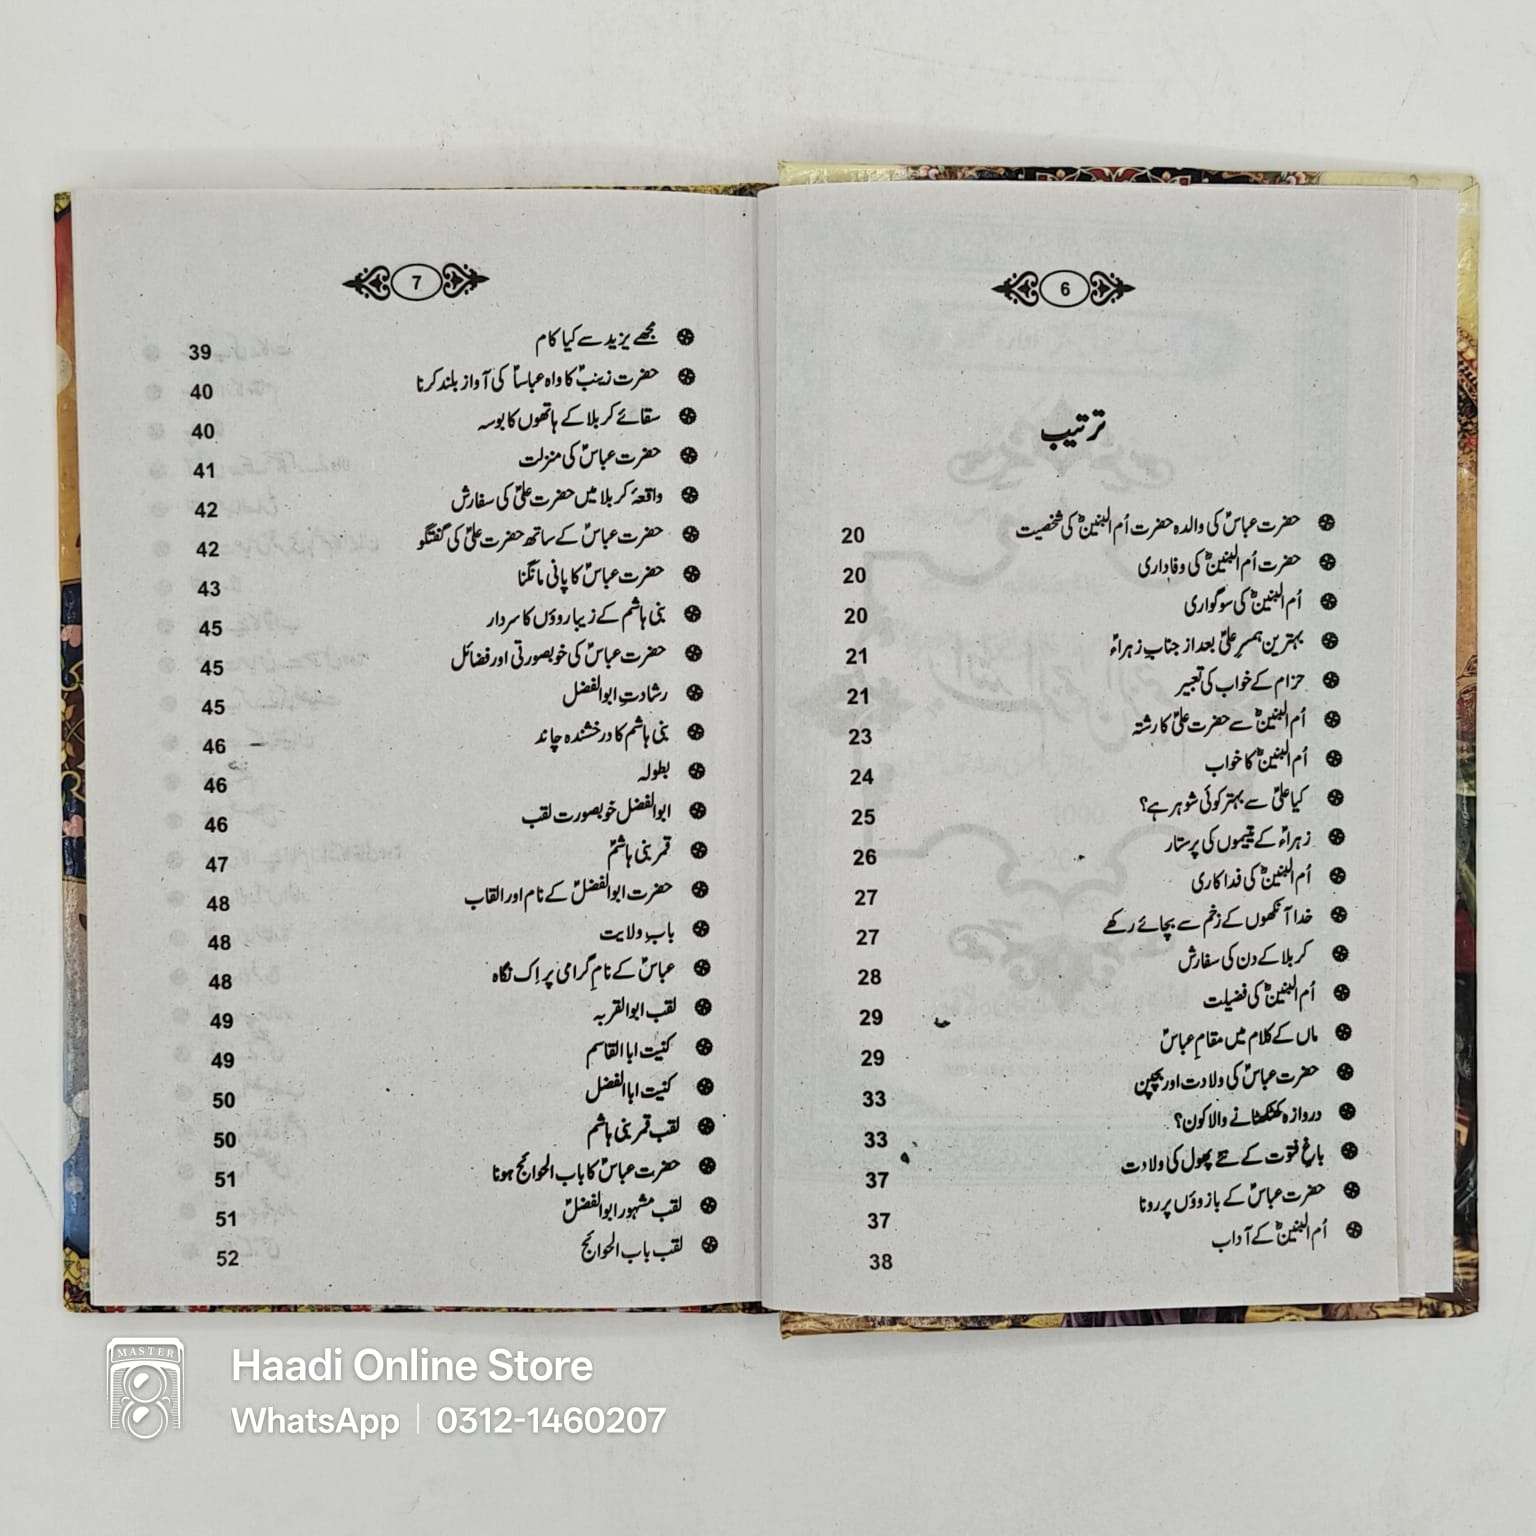 6
ترتیب
حضرت عباسؑ کی والدہ حضرت اُم البنینؑ کی شخصیت 20
حضرت اُم البنینؑ کی وفاداری 20
اُم البنینؑ کی سوگواری 20
بہترین ہمسرِ علیؑ بعد از جنابِ زہراءؑ 21
حزام کے خواب کی تعبیر 21
اُم البنینؑ سے حضرت علیؑ کا رشتہ 23
اُم البنینؑ کا خواب 24
کیا علیؑ سے بہتر کوئی شوہر ہے؟ 25
زہراءؑ کے یتیموں کی پرستار 26
اُم البنینؑ کی فداکاری 27
خدا آنکھوں کے زخم سے بچائے رکھے 27
کربلا کے دن کی سفارش 28
اُم البنینؑ کی فضیلت 29
ماں کے کلام میں مقامِ عباسؑ 29
حضرت عباسؑ کی ولادت اور بچپن 33
دروازہ کھٹکھٹانے والا کون؟ 33
باغِ فتوت کے نئے پھول کی ولادت 37
حضرت عباسؑ کے بازوؤں پر رونا 37
اُم البنینؑ کے آداب 38
7
مجھے یزید سے کیا کام 39
حضرت زینبؑ کا واہ عباساؑ کی آواز بلند کرنا 40
سقائے کربلا کے ہاتھوں کا بوسہ 40
حضرت عباسؑ کی منزلت 41
واقعۂ کربلا میں حضرت علیؑ کی سفارش 42
حضرت عباسؑ کے ساتھ حضرت علیؑ کی گفتگو 42
حضرت عباسؑ کا پانی مانگنا 43
بنی ہاشم کے زیبا روؤں کا سردار 45
حضرت عباسؑ کی خوبصورتی اور فضائل 45
رشادتِ ابوالفضل 45
بنی ہاشم کا درخشندہ چاند 46
بطولہ 46
ابوالفضل خوبصورت لقب 46
قمر بنی ہاشمؑ 47
حضرت ابوالفضلؑ کے نام اور القاب 48
بابِ ولایت 48
عباسؑ کے نامِ گرامی پر اِک نگاہ 48
لقب ابوالقربہ 49
کنیت ابا القاسم 49
کنیت ابا الفضل 50
لقب قمر بنی ہاشم 50
حضرت عباسؑ کا باب الحوائج ہونا 51
لقب مشہور ابوالفضلؑ 51
لقب باب الحوائج 52
MASTER
Haadi Online Store
WhatsApp | 0312-1460207